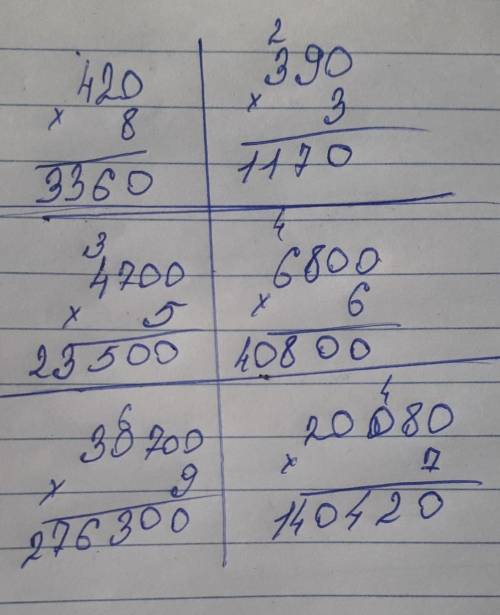 420
× 8
3360
2
390
× 3
1170
3
4700
× 5
23500
4
6800
× 6
40800
6
30700
× 9
276300
4
20080
× 7
140420